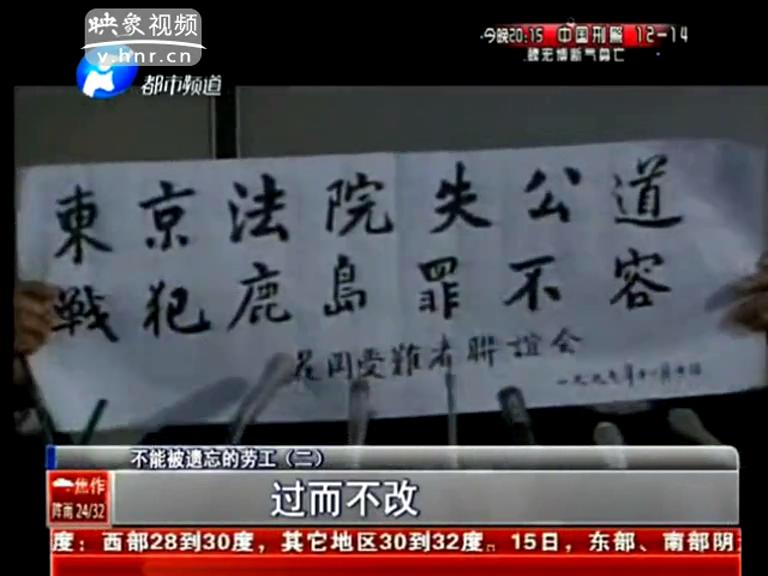 映象视频
v.hnr.cn
都市频道
今晚20:15 中国刑警 12-14
魏宏博断气身亡
東京法院失公道
戦犯鹿島罪不容
花岡受難者聯誼会
一九九七年十二月十日
不能被遗忘的劳工(二)
焦作
阵雨 24/32
过而不改
度；西部28到30度，其它地区30到32度。15日，东部、南部阴